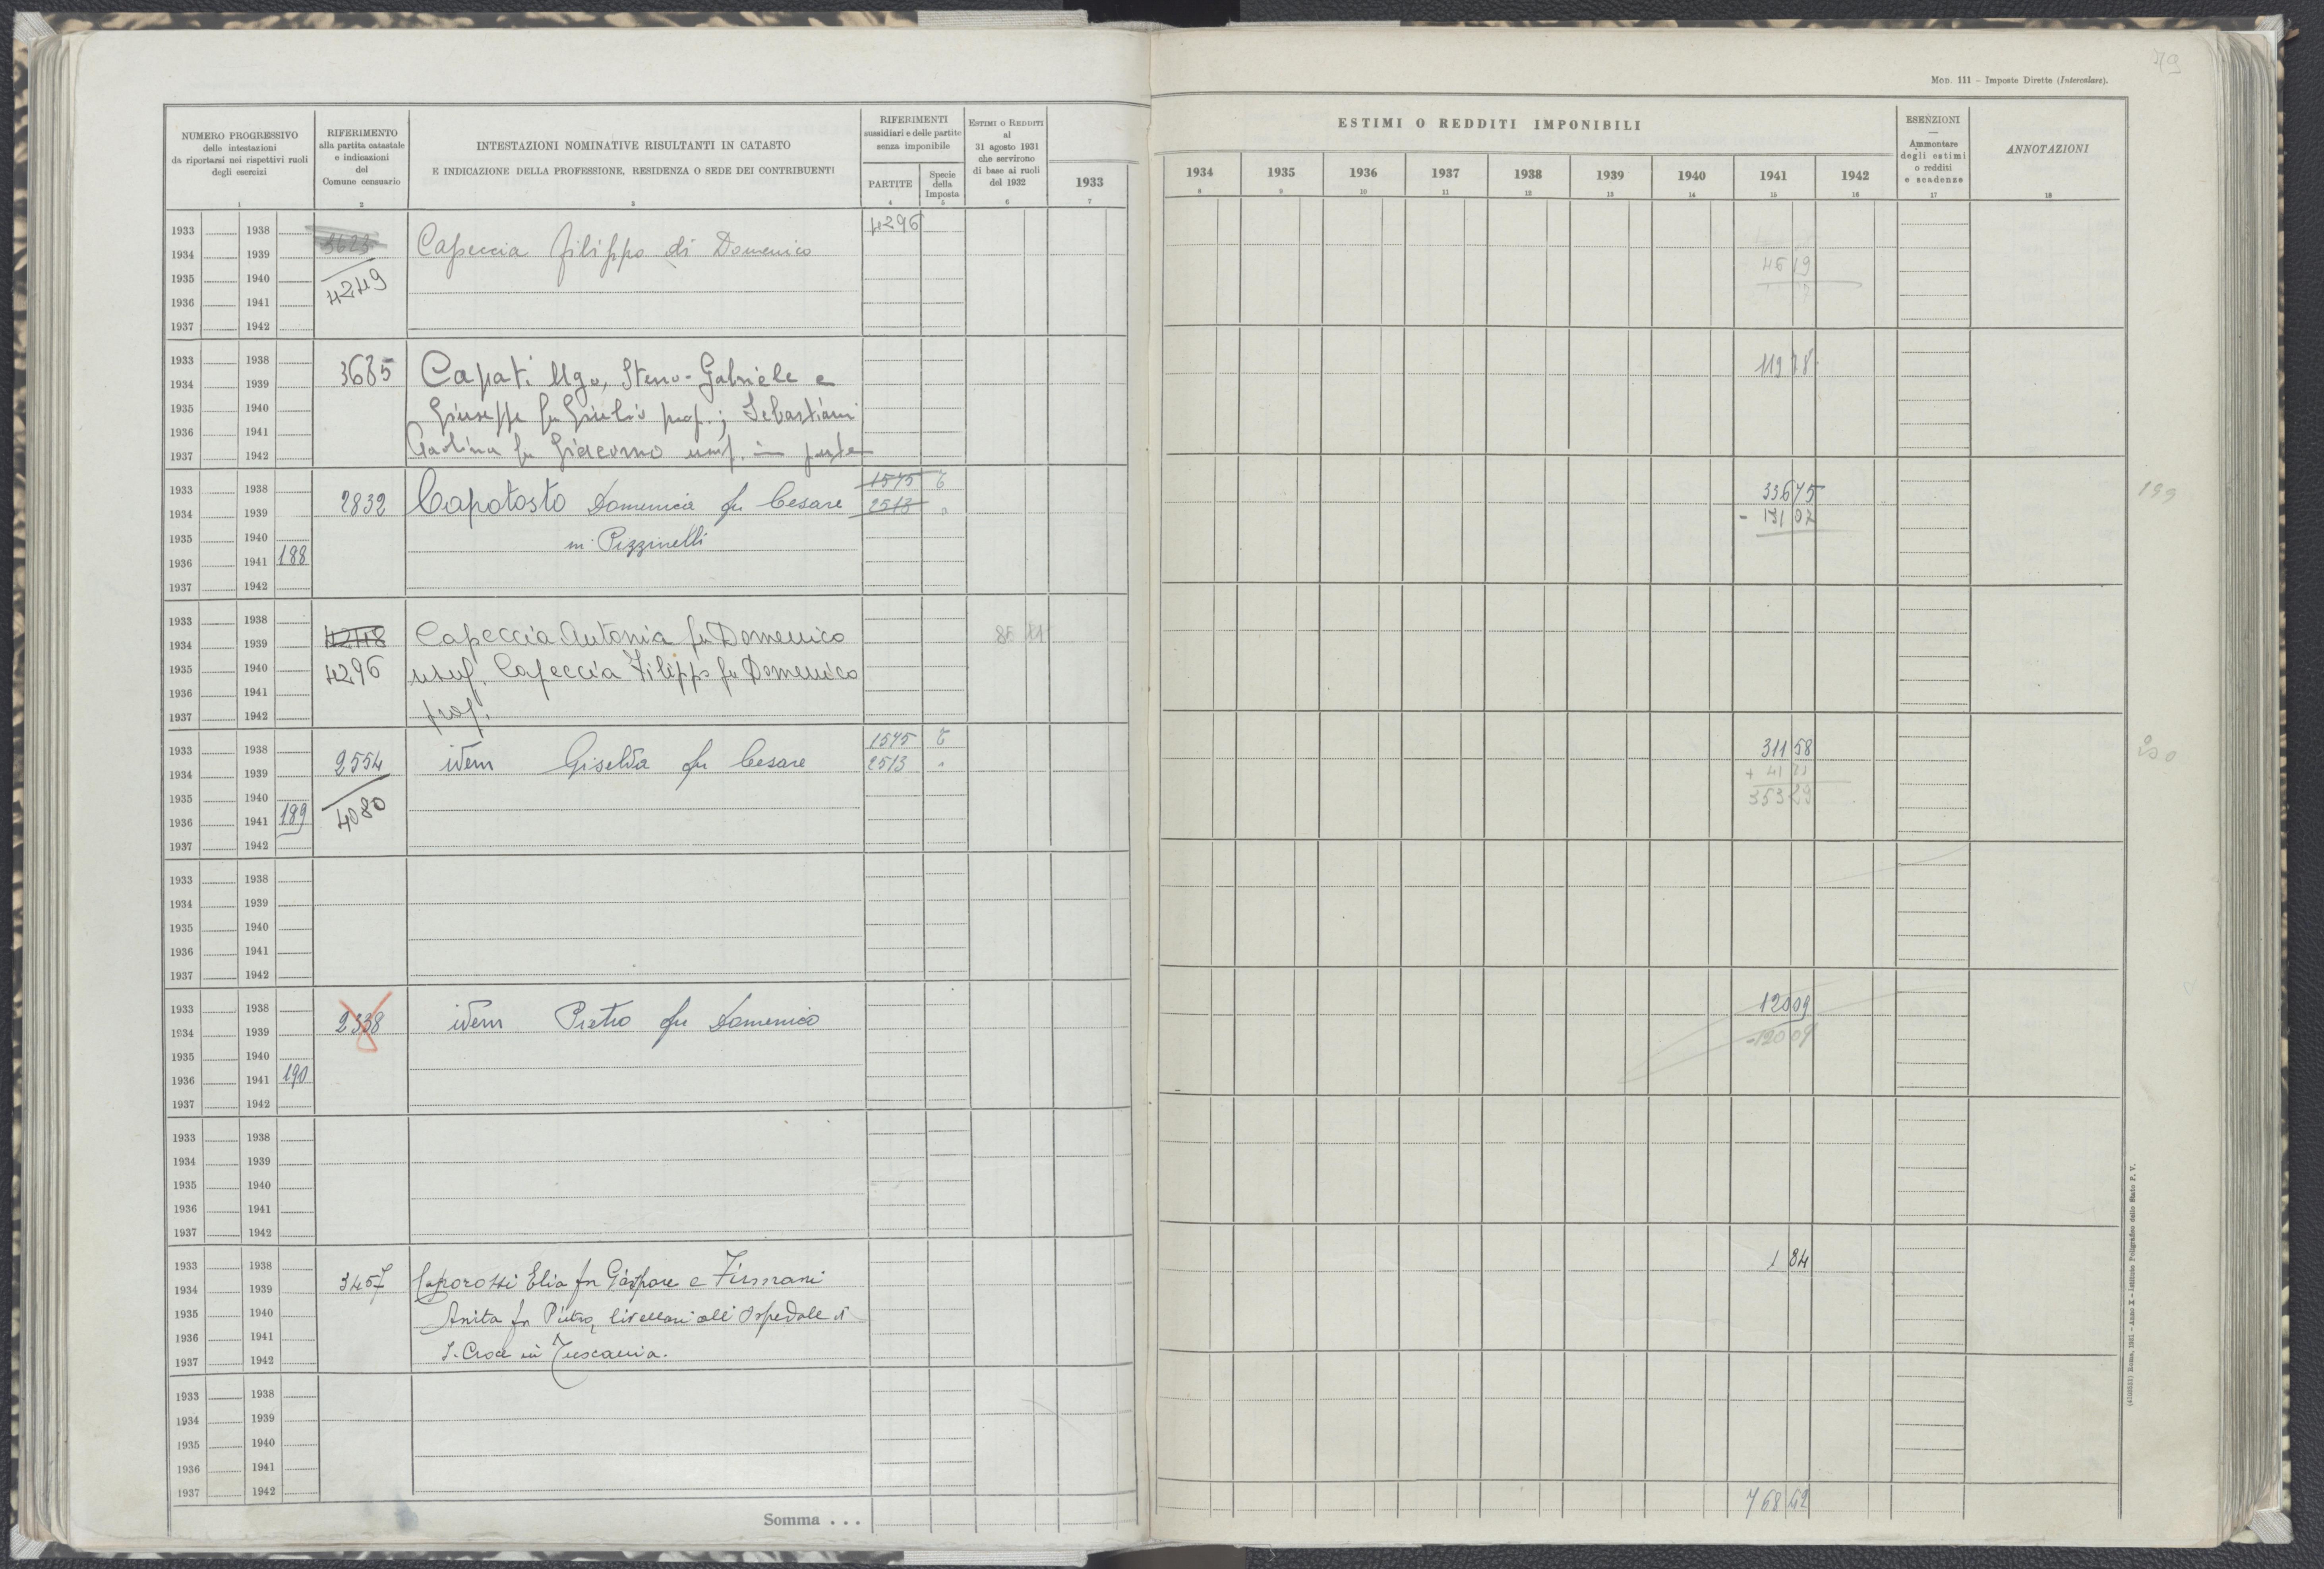 79
MOD. 111 – Imposte Dirette (Intercalare).
NUMERO PROGRESSIVO
delle intestazioni
da riportarsi nei rispettivi ruoli
degli esercizi
1
RIFERIMENTO
alla partita catastale
e indicazioni
del
Comune censuario
2
INTESTAZIONI NOMINATIVE RISULTANTI IN CATASTO
E INDICAZIONE DELLA PROFESSIONE, RESIDENZA O SEDE DEI CONTRIBUENTI
3
RIFERIMENTI
sussidiari e delle partite
senza imponibile
PARTITE
4
Specie
della
Imposta
5
ESTIMI O REDDITI
al
31 agosto 1931
che servirono
di base ai ruoli
del 1932
6
1933
7
ESTIMI O REDDITI IMPONIBILI
1934 1935 1936 1937 1938 1939 1940 1941 1942
8 9 10 11 12 13 14 15 16
ESENZIONI
—
Ammontare
degli estimi
o redditi
e scadenze
17
ANNOTAZIONI
18
1933 1938 3623 4296
1934 1939 Capeccia filippo di Domenico
1935 1940 4249 46 19
1936 1941
1937 1942
1933 1938 3685 Capati Ugo, Steno-Gabriele e 119 78
1934 1939
1935 1940 Giuseppe fu Giulio prop.; Sebastiani
1936 1941
1937 1942 Paolina fu Giacomo usuf. in parte
1933 1938 1575 T 336 75 199
1934 1939 2832 Capotosto Domenica fu Cesare 2513 " - 131 07
1935 1940 in Pizzinelli
1936 1941 188
1937 1942
1933 1938
1934 1939 4248 Capeccia Antonia fu Domenico
1935 1940 4296 usuf. Capeccia Filippo fu Domenico
1936 1941
1937 1942 prop.
1933 1938 1575 T 311 58
1934 1939 2554 idem Giselda fu Cesare 2513 " + 41 71
1935 1940 4080 353 29
1936 1941 189
1937 1942
1933 1938
1934 1939
1935 1940
1936 1941
1937 1942
1933 1938 120 09
1934 1939 2338 idem Pietro fu Domenico -120 09
1935 1940
1936 1941 190
1937 1942
1933 1938
1934 1939
1935 1940
1936 1941
1937 1942
1933 1938 1 84
1934 1939 3457 Caporossi Elia fu Gaspare e Firmani
1935 1940 Anita fu Pietro, livellari all'Ospedale di
1936 1941
1937 1942 S. Croce in Tuscania.
1933 1938
1934 1939
1935 1940
1936 1941
1937 1942
Somma . . . 768 42
(4109531) Roma, 1931 – Anno X – Istituto Poligrafico dello Stato P. V.